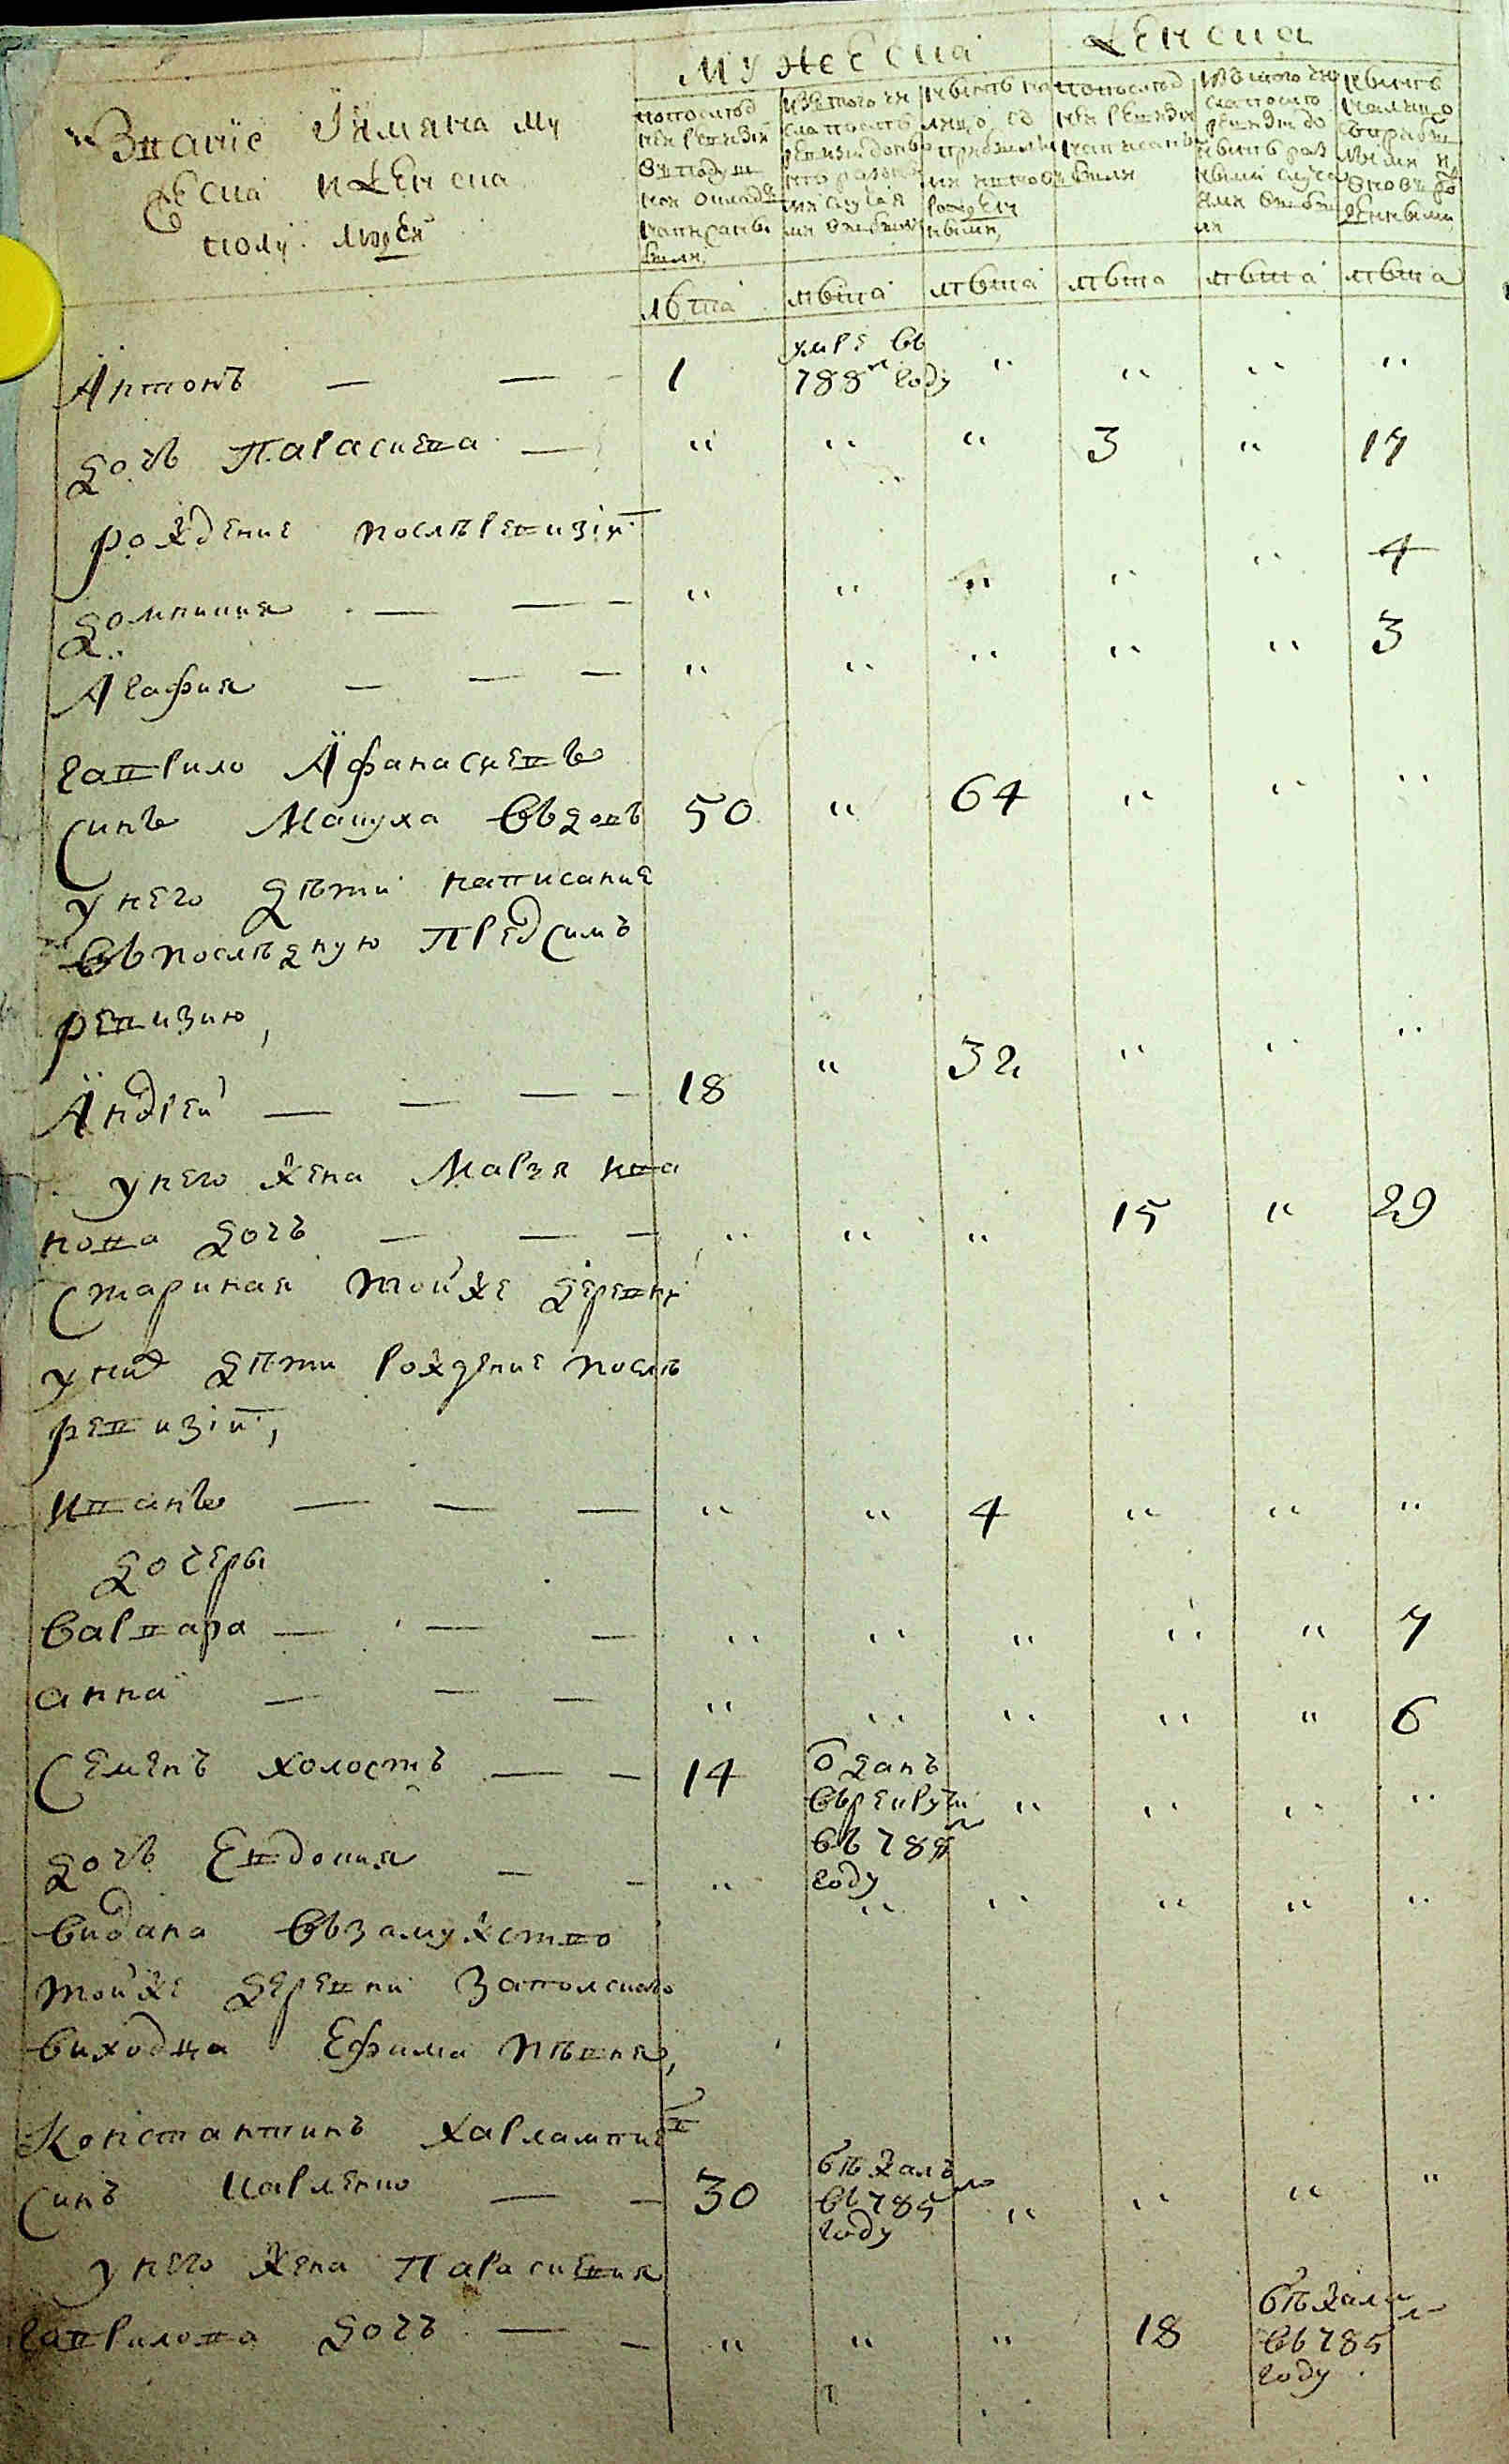 Званіе Їимяна му
жеска и женска
полу людей
Мужеска
Женска
попослѣд
ней ревизіи
въ подуш
ном окладѣ
написаны
были,
изтого чи
сла послѣ
ревизіи до нынѣ
разны
ми случая
ми выбыло
нынѣ на
лицо со
прибылы
ми и вновь
рожден
ными,
попослѣд
ней ревизіи
написаны
были
изтого чи
сла послѣ
ревизіи до
нынѣ раз
ными случа
ями выбы
ли
нынѣ
налицо
съприбы
лыми и
вновь ро
жденными
лѣта лѣта лѣта лѣта лѣта лѣта
Антонъ — — 1 умре въ 788м году " " " "
дочь Параскева — " " " 3 " 17
рожденые послѣ ревизіи
Домникия — — " " " " " 4
Агафия — — — " " " " " 3
Гаврило Афанасиевъ
синъ Мацуха вдовъ 50 " 64 " " "
у него дѣти написание
въ послѣдную предсимъ
ревизию,
Андрей — — — 18 " 32 " " "
у него жена Марѳя Ива
нова дочъ — — — " " " 15 " 29
старинная тойже деревни
у них дѣти рожденые послѣ
ревизіи,
Иванъ — — — " " 4 " " "
дочеры
Варвара — — — " " " " " 7
Анна — — — " " " " " 6
Семенъ холостъ — — 14 одданъ въ рекруты въ 788м году " " " "
дочь Евдокия — — " " " " " "
видана в замужство
тойже деревни Заполского
виходца Ефима Пѣвня,
Константинъ Харлампиев
синъ Кавленко — — 30 бѣжалъ въ 785м году " " " "
у него жена Параскевия
Гаврилова дочъ — — " " " 18 бѣжала въ 785м году